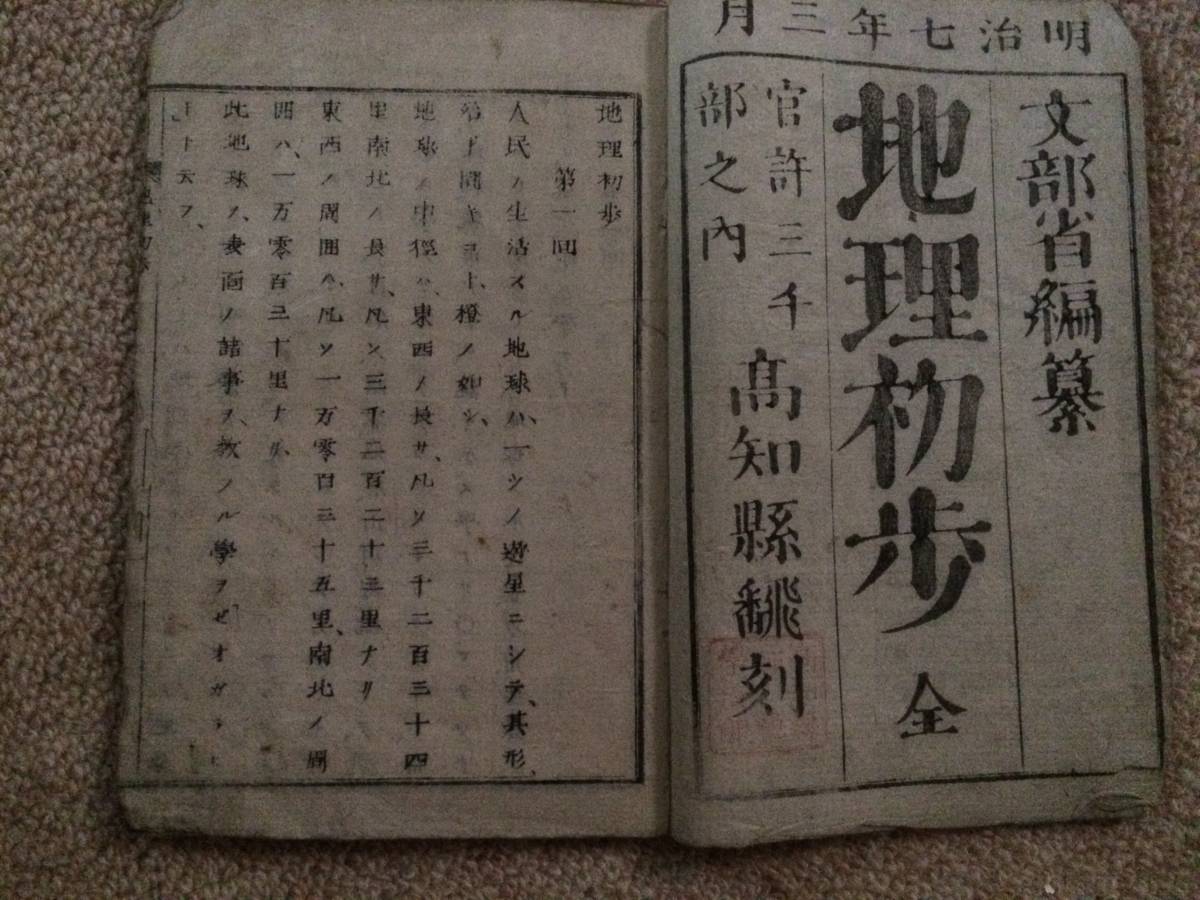 明治七年三月
文部省編纂
地理初歩 全
官許三千
部之内
高知縣飜刻
地理初歩
第一回
人民ノ生活スル地球ハ、一ツノ遊星ニシテ、其形、
圓キヿ、橙ノ如シ、
地球ノ中徑ハ、東西ノ長サ、凡ソ三千二百三十四
里南北ノ長サ、凡ソ三千二百二十三里ナリ
東西ノ周囲ハ、凡ソ一万零百三十五里、南北ノ周
囲ハ、一万零百三十里ナリ、
此地球ノ、表面ノ諸事ヲ、教フル學ヲゼオガラヒ
ート云フ、